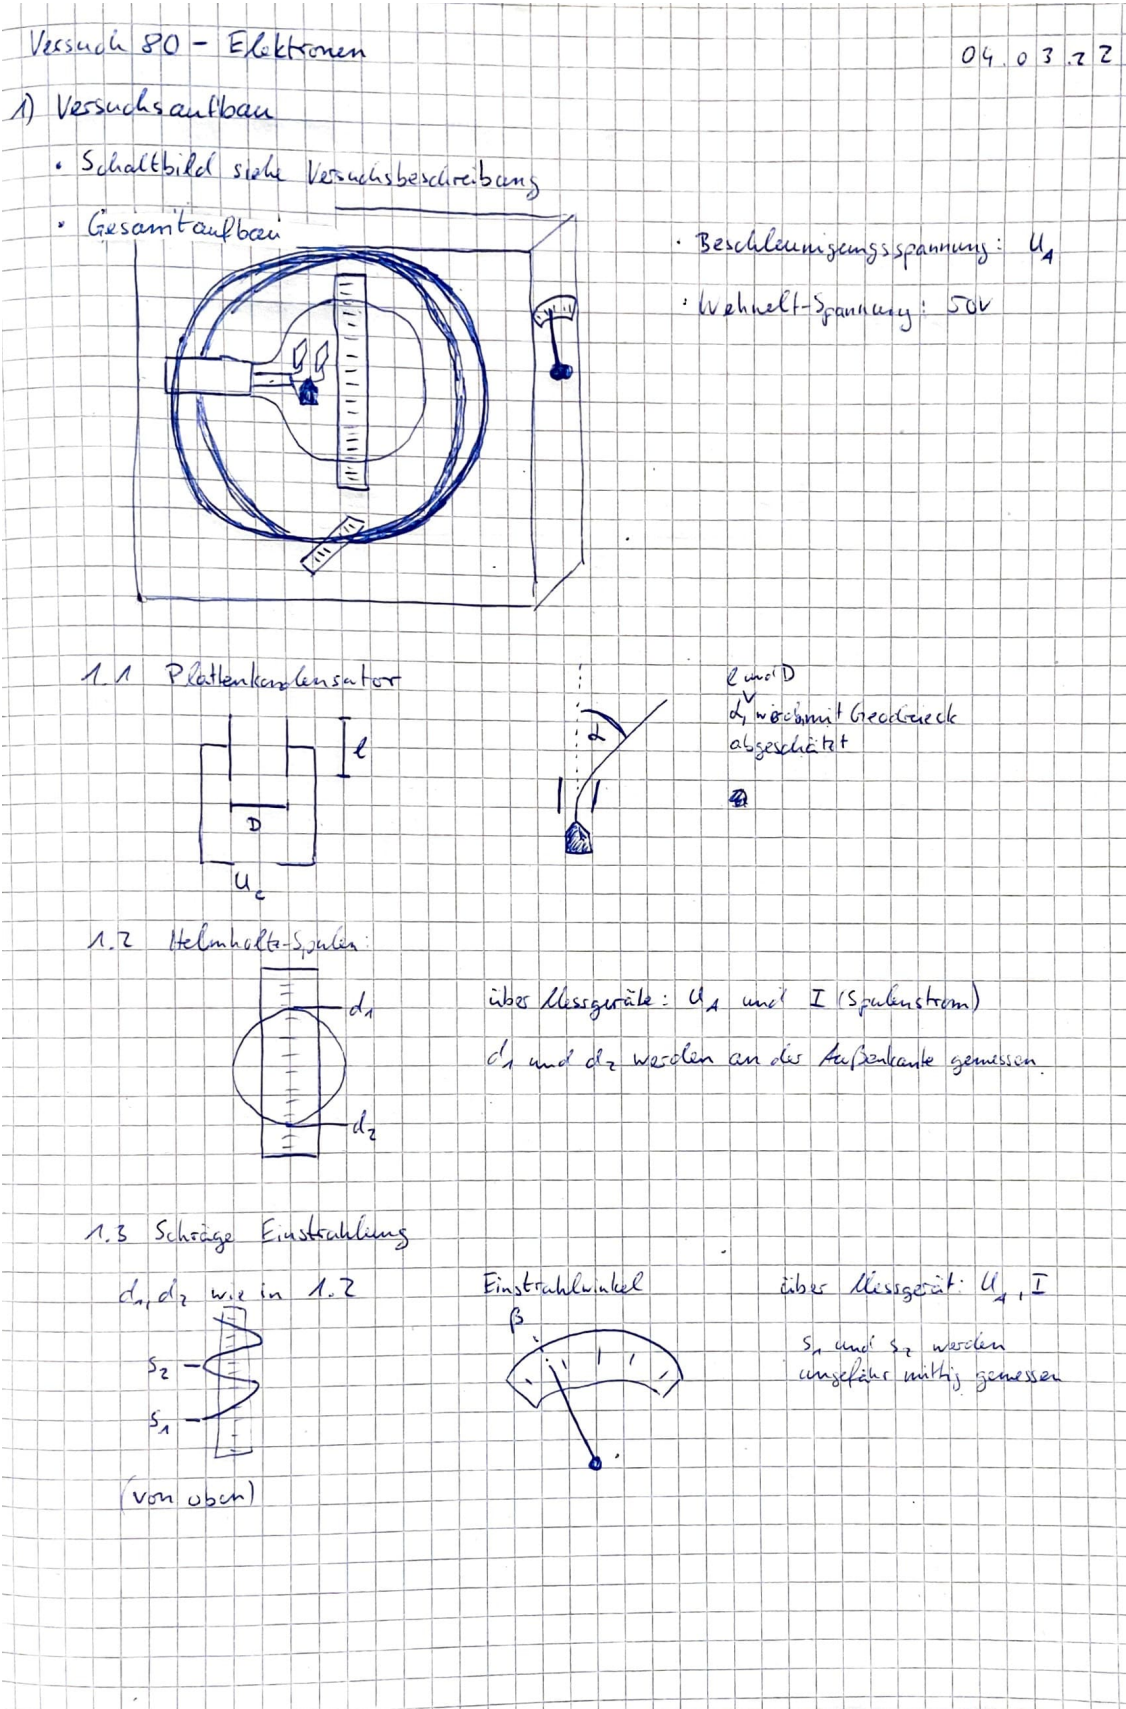 Versuch 80 - Elektronen
04.03.22
1) Versuchsaufbau
• Schaltbild siehe Versuchsbeschreibung
• Gesamtaufbau
• Beschleunigungsspannung: U_A
• Wehnelt-Spannung: 50V
1.1 Plattenkondensator
l
D
U_c
α
l und D
α, wird mit Geodreieck
abgeschätzt
1.2 Helmholtz-Spulen:
d_1
d_2
über Messgeräte: U_A und I (Spulenstrom)
d_1 und d_2 werden an der Außenkante gemessen.
1.3 Schräge Einstrahlung
d_1, d_2 wie in 1.2
s_2
s_1
(von oben)
Einstrahlwinkel
β
über Messgerät: U_A, I
s_1 und s_2 werden
ungefähr mittig gemessen